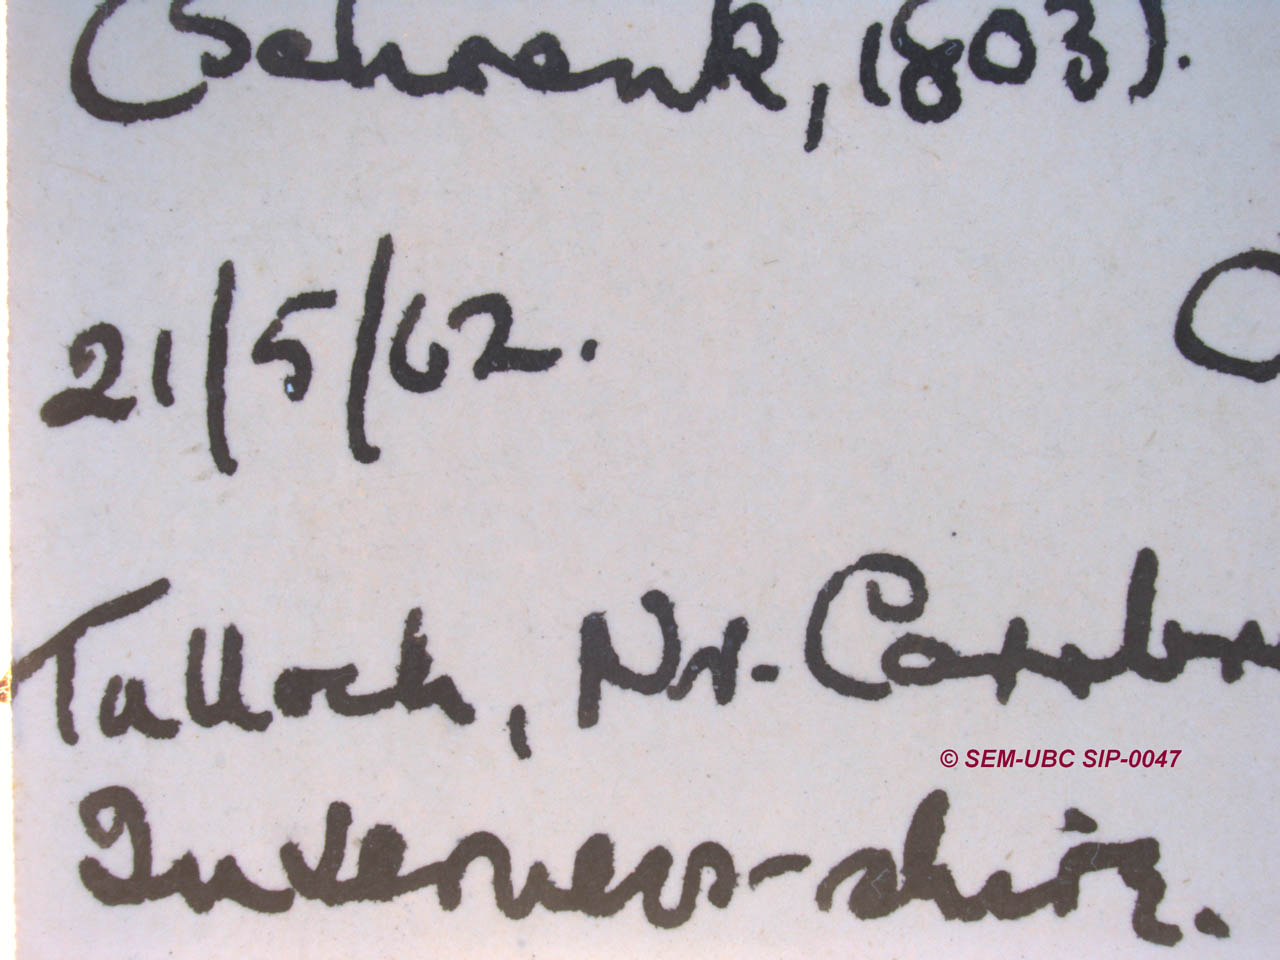 (Schrenk, 1803).
21/5/62.
Tulloch, Nr. Carrbr
© SEM-UBC SIP-0047
Inverness-shire.